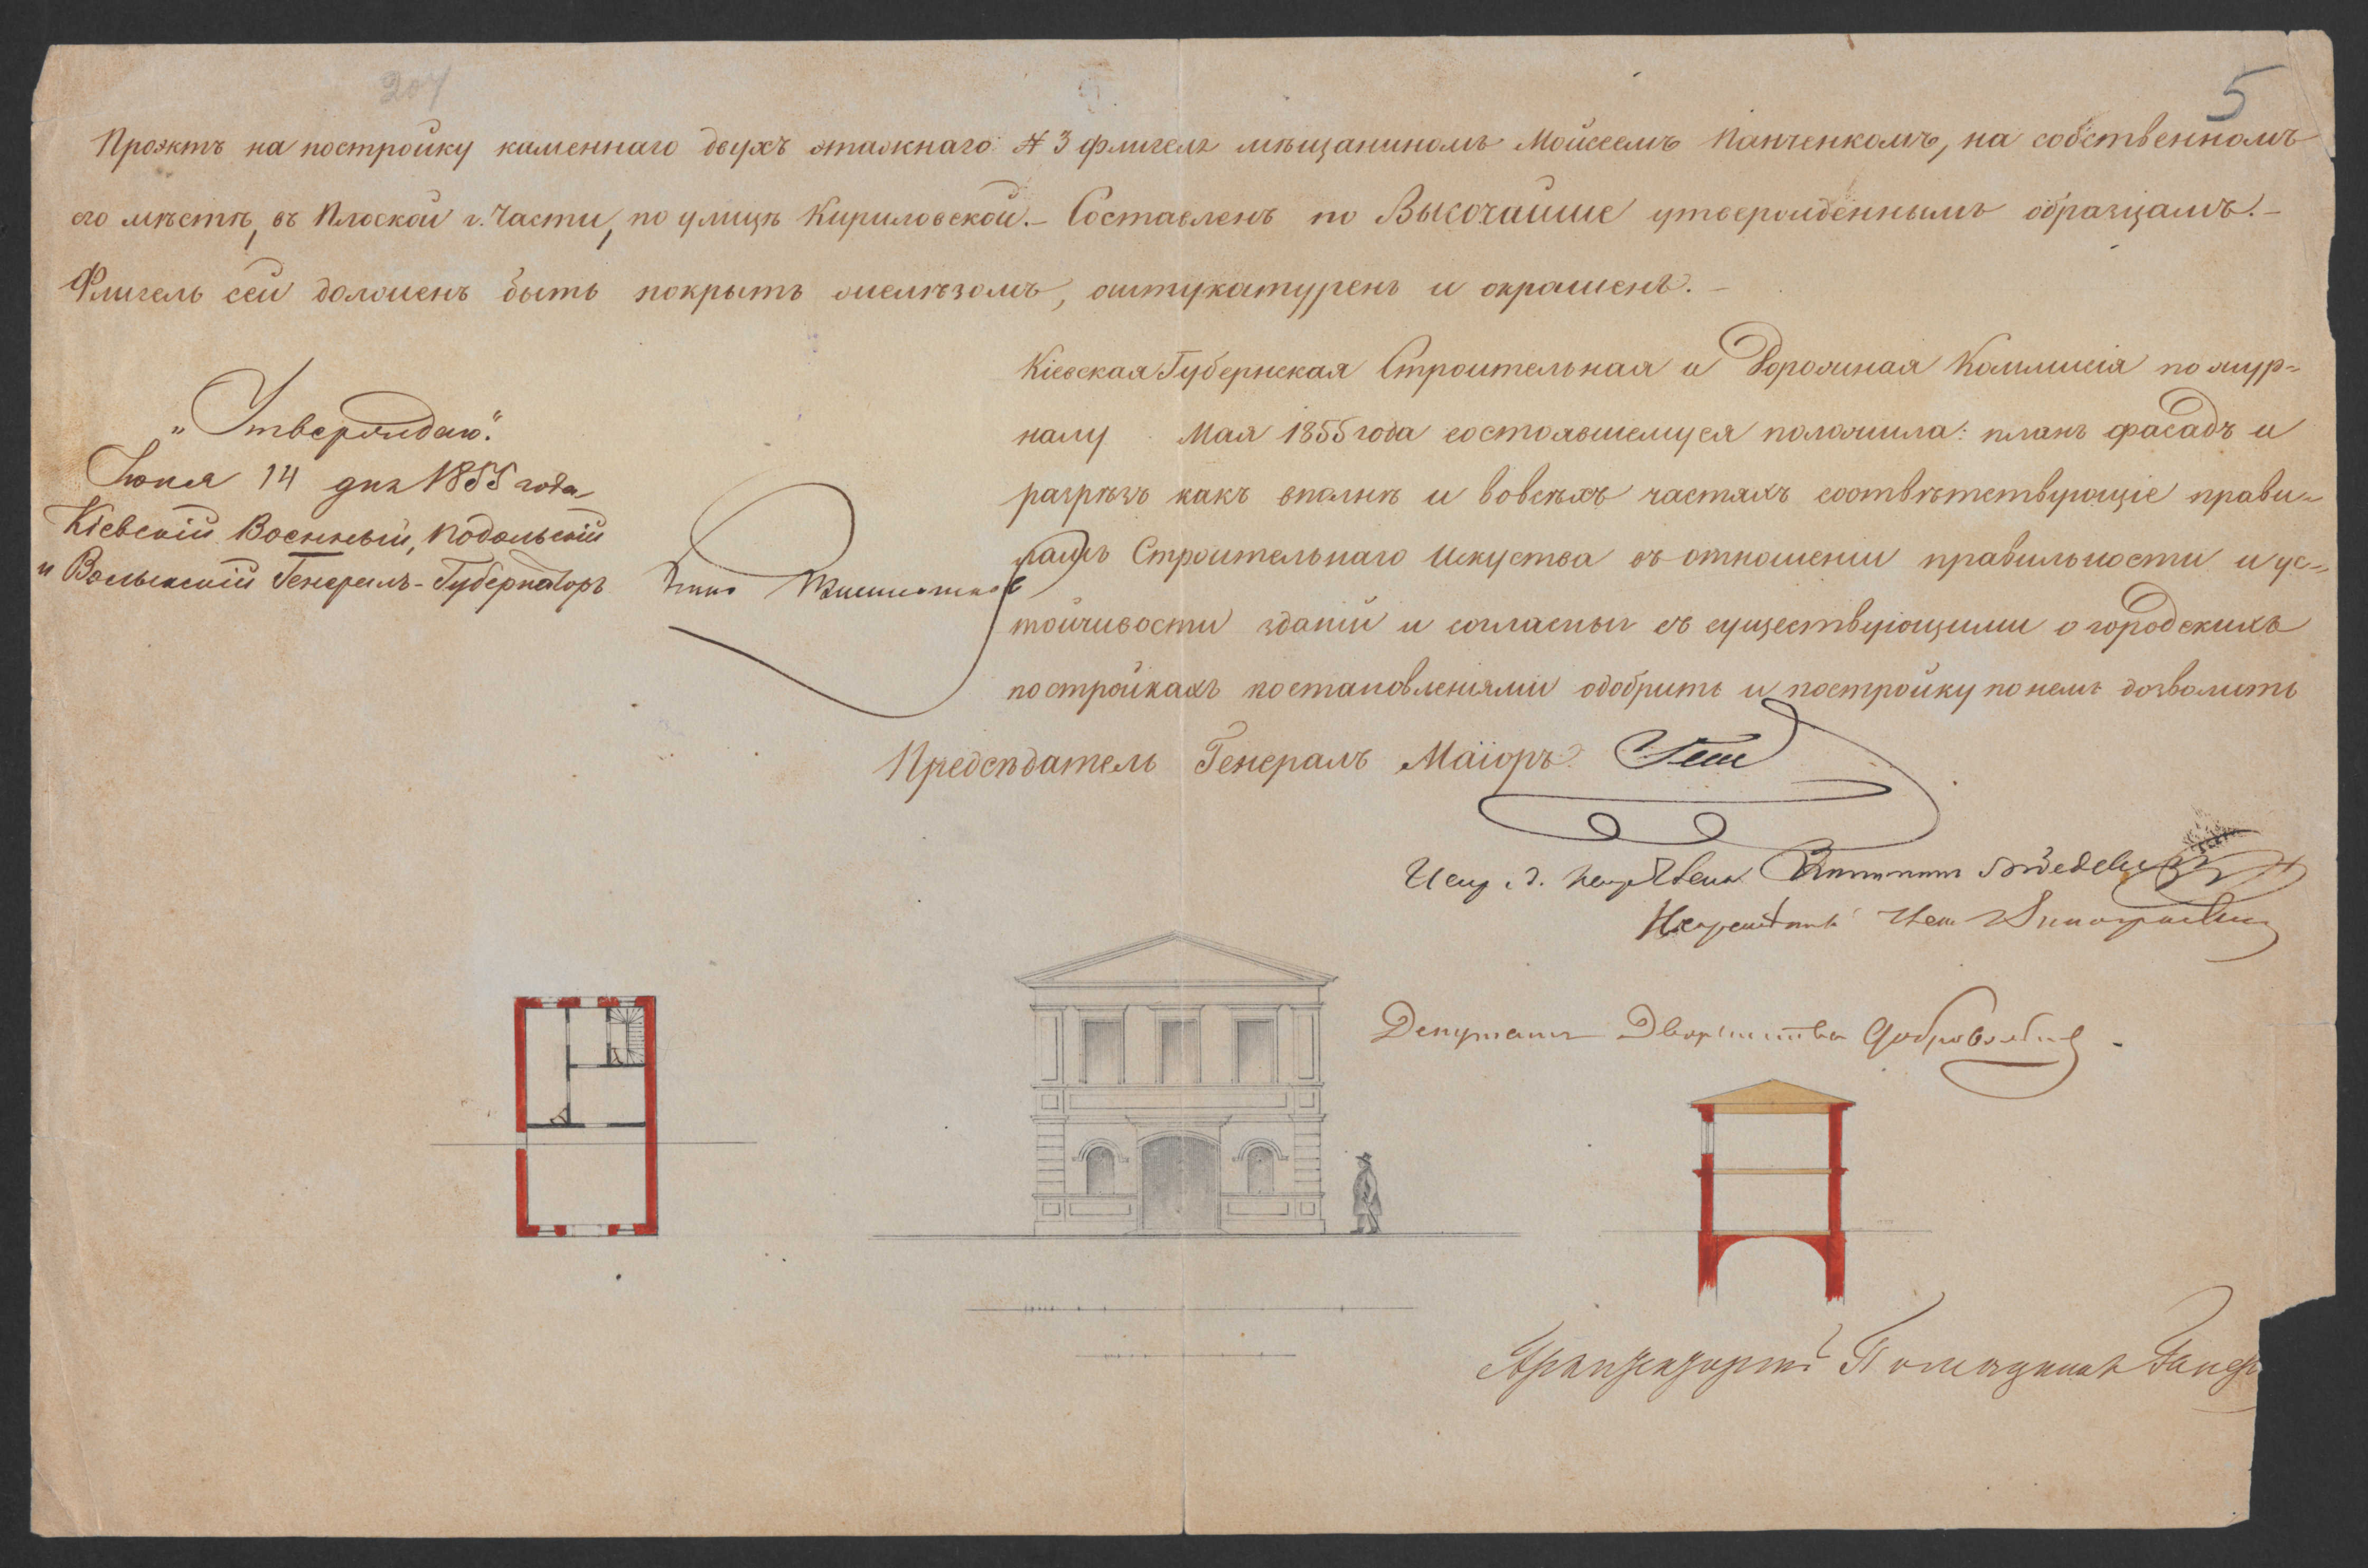 207
5
Проэктъ на постройку каменнаго двухъ этажнаго № 3 флигеля мѣщаниномъ Мойсеемъ Панченкомъ, на собственномъ
его мѣстѣ, въ Плоской г. Части, по улицѣ Кириловской. – Составленъ по Высочайше утвержденнымъ образцамъ. –
Флигель сей долженъ быть покрытъ желѣзомъ, оштукатуренъ и окрашенъ. –
Кіевская Губернская Строительная и Дорожная Коммисія по жур=
налу Мая 1855 года состоявшемуся положила: планъ фасадъ и
разрѣзъ какъ вполнѣ и вовсѣхъ частяхъ соотвѣтствующіе прави=
ламъ Строительнаго Искуства въ отношении правильности и ус=
тойчивости зданій и согласны съ существующими о городскихъ
постройкахъ постановленіями одобрить и постройку по немъ дозволить
„Утверждаю“.
14 дня 1855 года
Кіевскій Военный, Подольскій
и Волынскій Генералъ-Губернаторъ
Предсѣдатель Генералъ Маіоръ
Депутатъ Дворянства
Архитекторскій Помощникъ